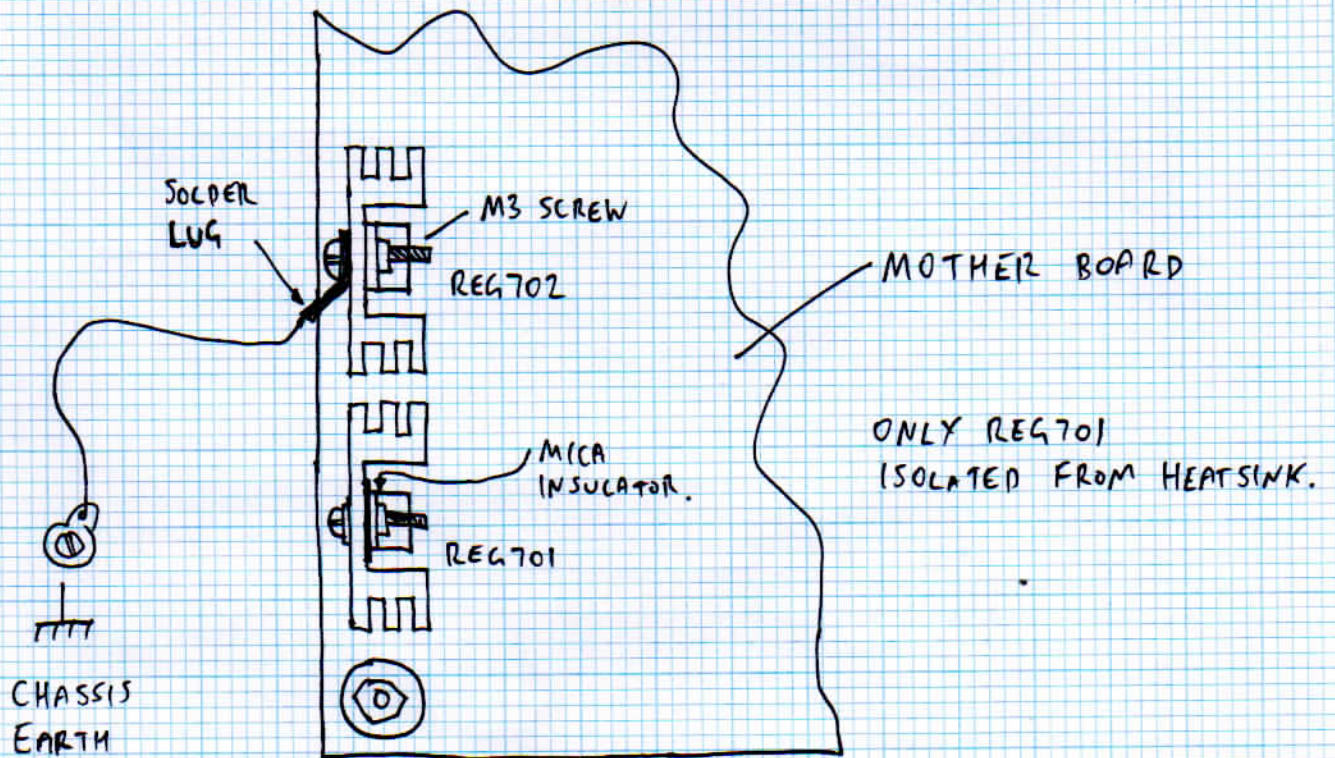 SOLDER
LUG
M3 SCREW
REG702
MOTHER BOARD
MICA
INSULATOR.
REG701
ONLY REG701
ISOLATED FROM HEATSINK.
CHASSIS
EARTH